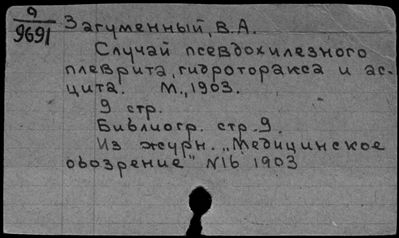 9
9691
Загуменный, В.А.
Случай псевдохилезного
плеврита, гидроторакса и ас-
цита. М., 1903.
9 стр.
Библиогр. стр. 9.
Из журн. „Медицинское
обозрение" №16 1903